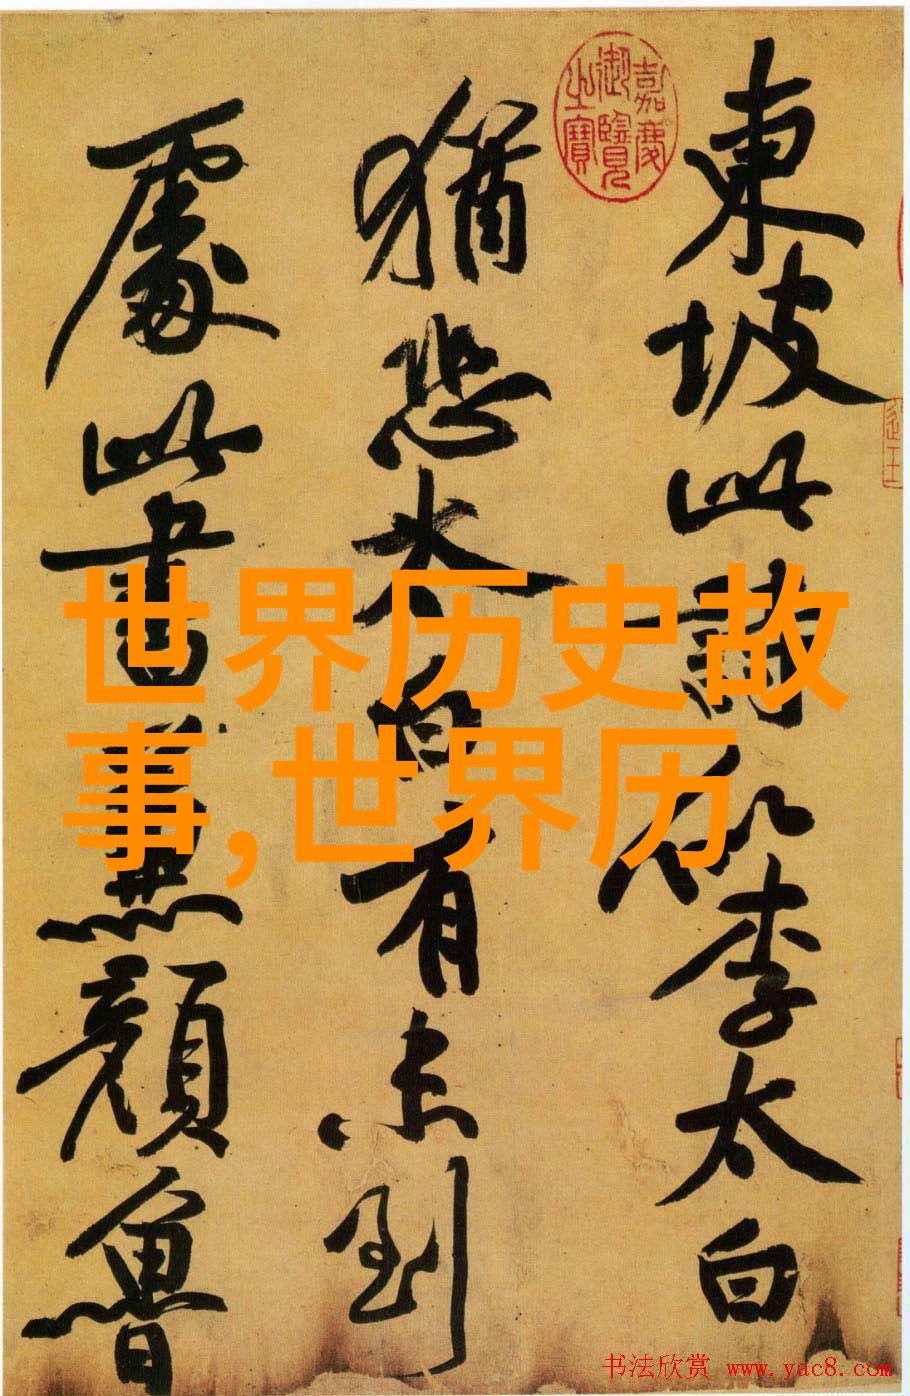 東坡此詩似李太白
猶恐太白有未到
處此書兼顏魯
嘉慶
御覽
之寶
世界历史故
事,世界历
书法欣赏 www.yac8.com